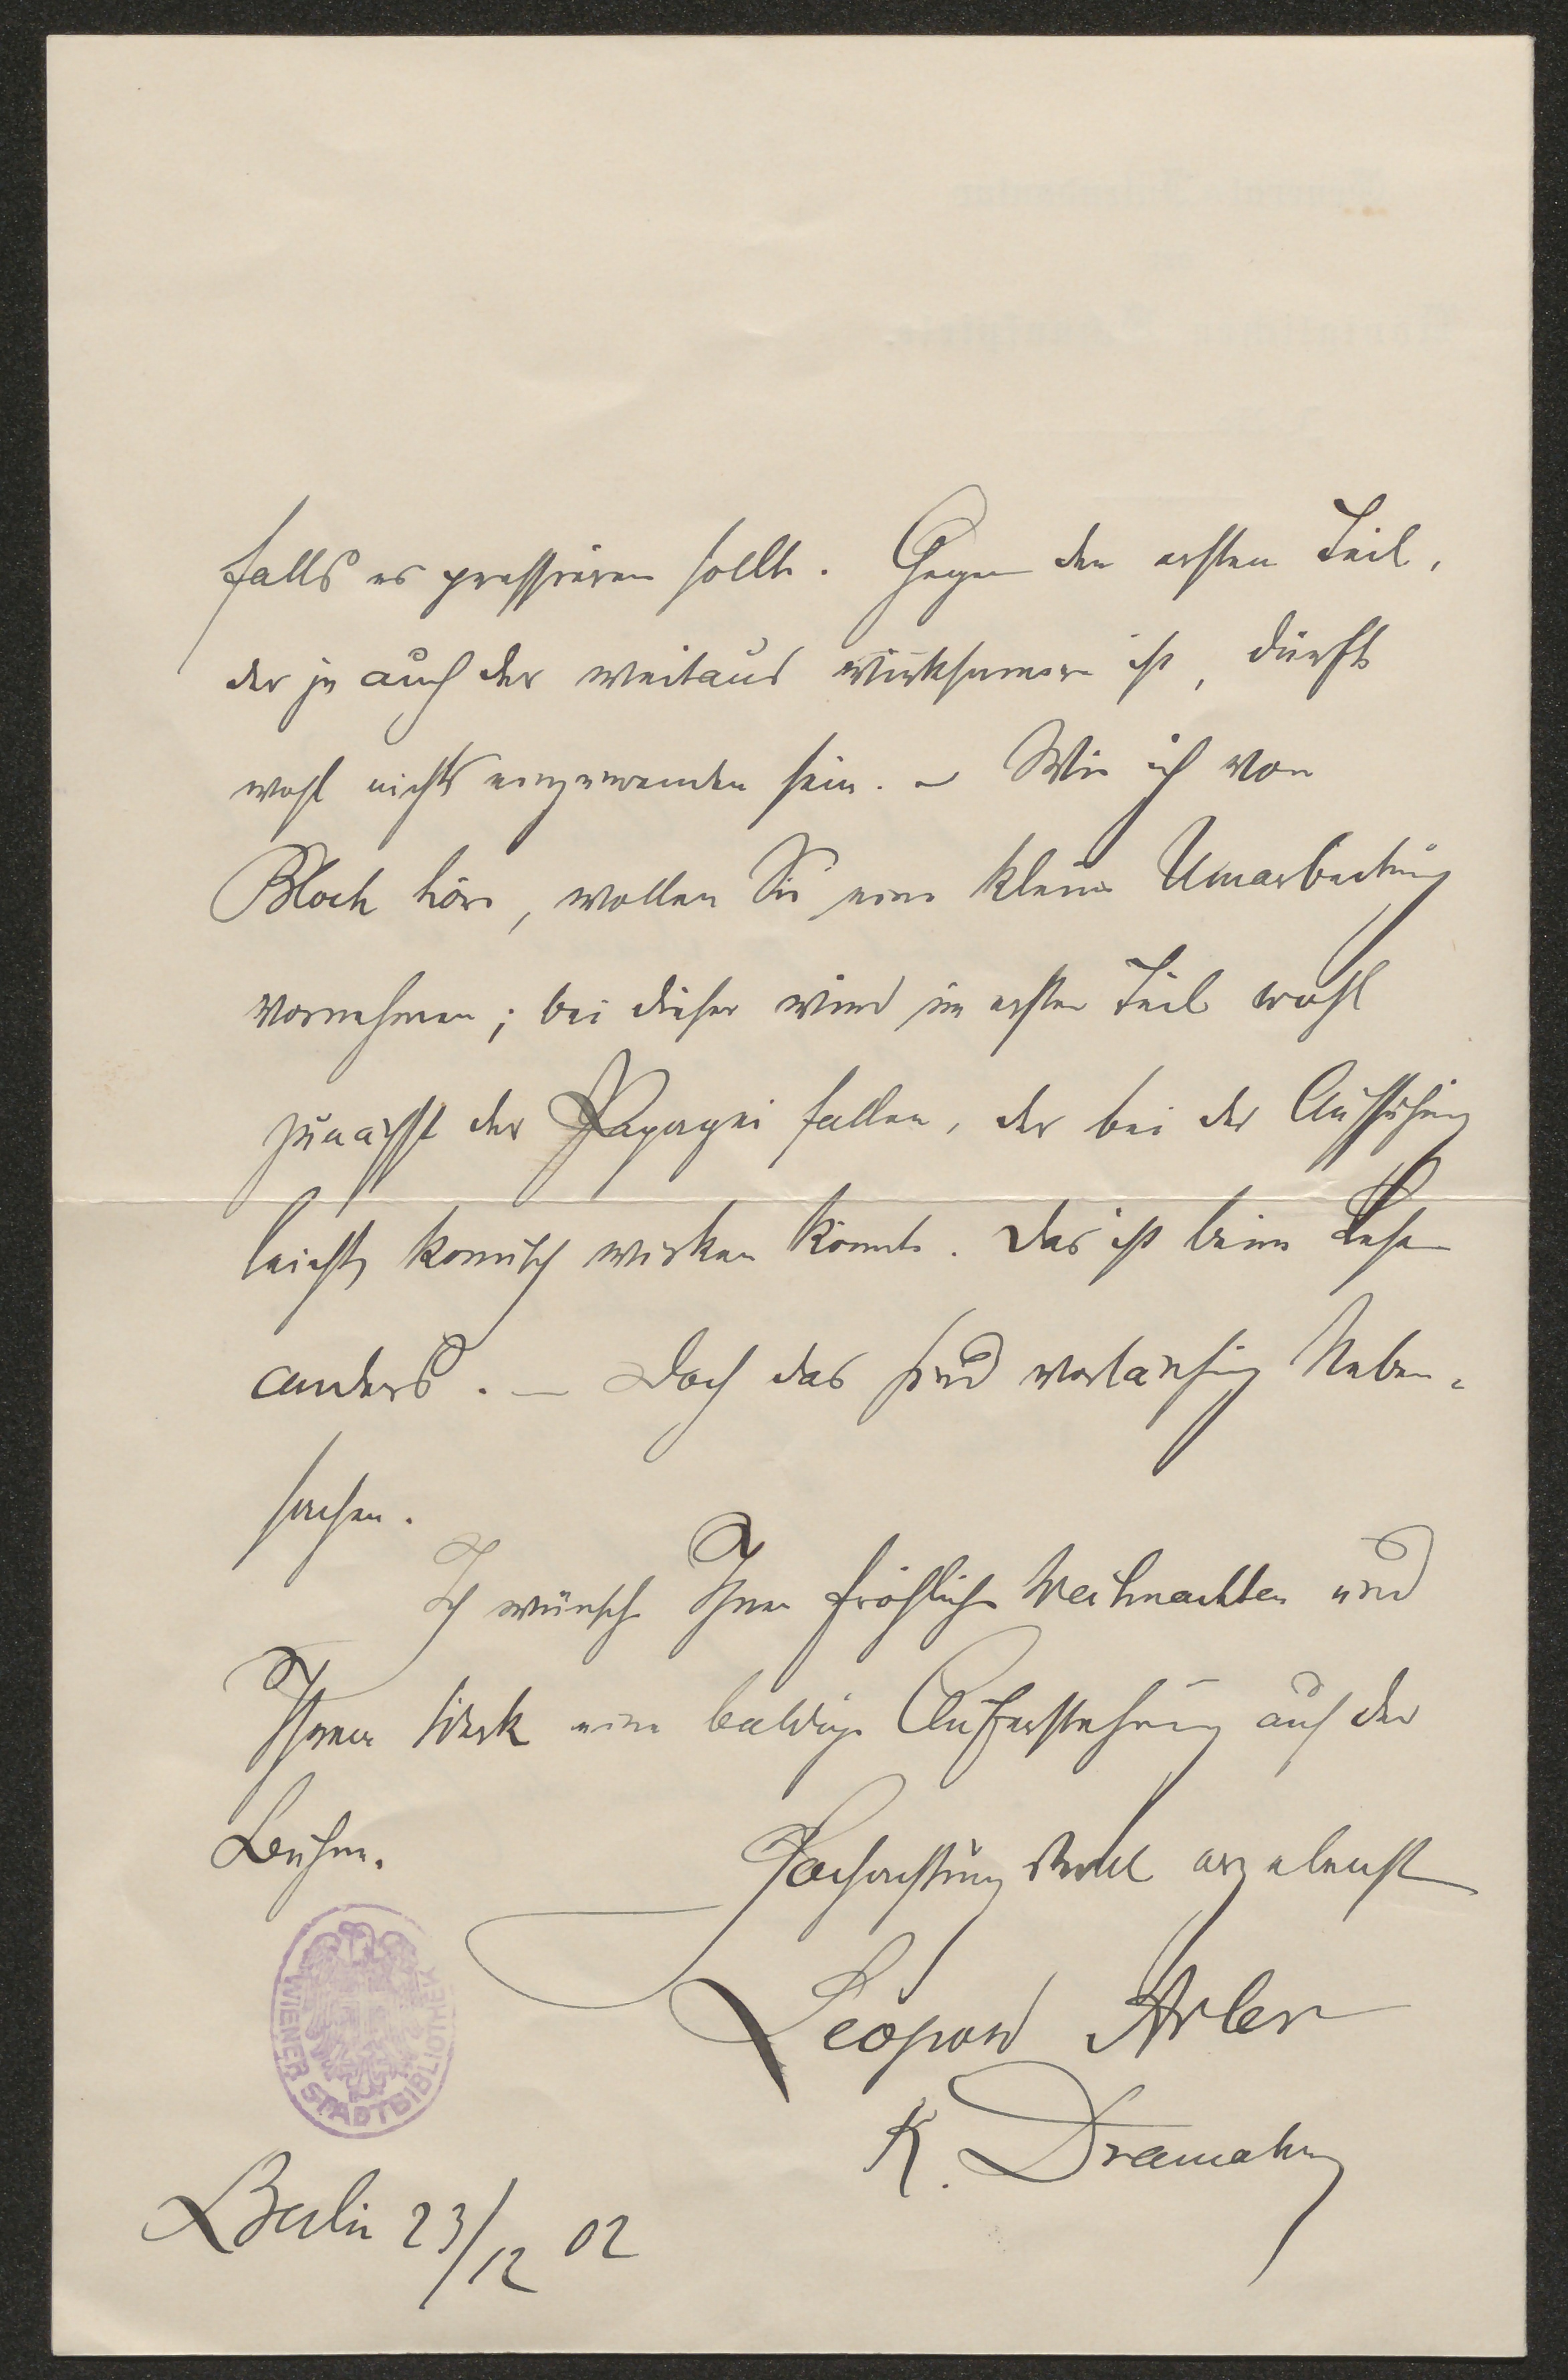 falls es pressieren sollte. Gegen den ersten Teil,
der ja auch der weitaus wirksamere ist, dürfte
wohl nichts einzuwenden sein. – Wie ich von
Bloch höre, wollen Sie eine kleine Umarbeitung
vornehmen; bei dieser wird im ersten Teil wohl
zunächst der Papagei fallen, der bei der Aufführung
leicht komisch wirken könnte. Das ist beim Lesen
anders. – Doch das sind vorläufig Neben-
sachen.
Ich wünsche Ihnen fröhliche Weihnachten und
Ihrem Werk eine baldige Auferstehung auf der
Bühne.
Hochachtungsvoll ergebenst
Leopold Adler
K. Dramaturg
Berlin 23/12 02
WIENER STADTBIBLIOTHEK